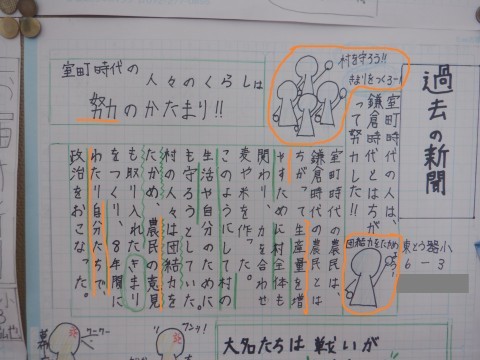 過去の新聞
6-3
室町時代の
人々のくらしは
努力のかたまり!!
村を守ろう!!
きまりをつくろー!
室町時代の人は、
鎌倉時代とはちが
って努力した!!
団結力をたかめ
室町時代の農民は、
鎌倉時代の農民とは
ちがって生産量を増
やすために村全体も
関わり、力を合わせ
麦や米を作った。
このようにして村の
生活や自分のために
も守ろうとしていた。
村の人々は団結力を
たかめ、農民の意見
も取り入れたきまり
をつくり、8年間に
わたり自分たちで、
政治をおこなった。
大名たちは戦いが